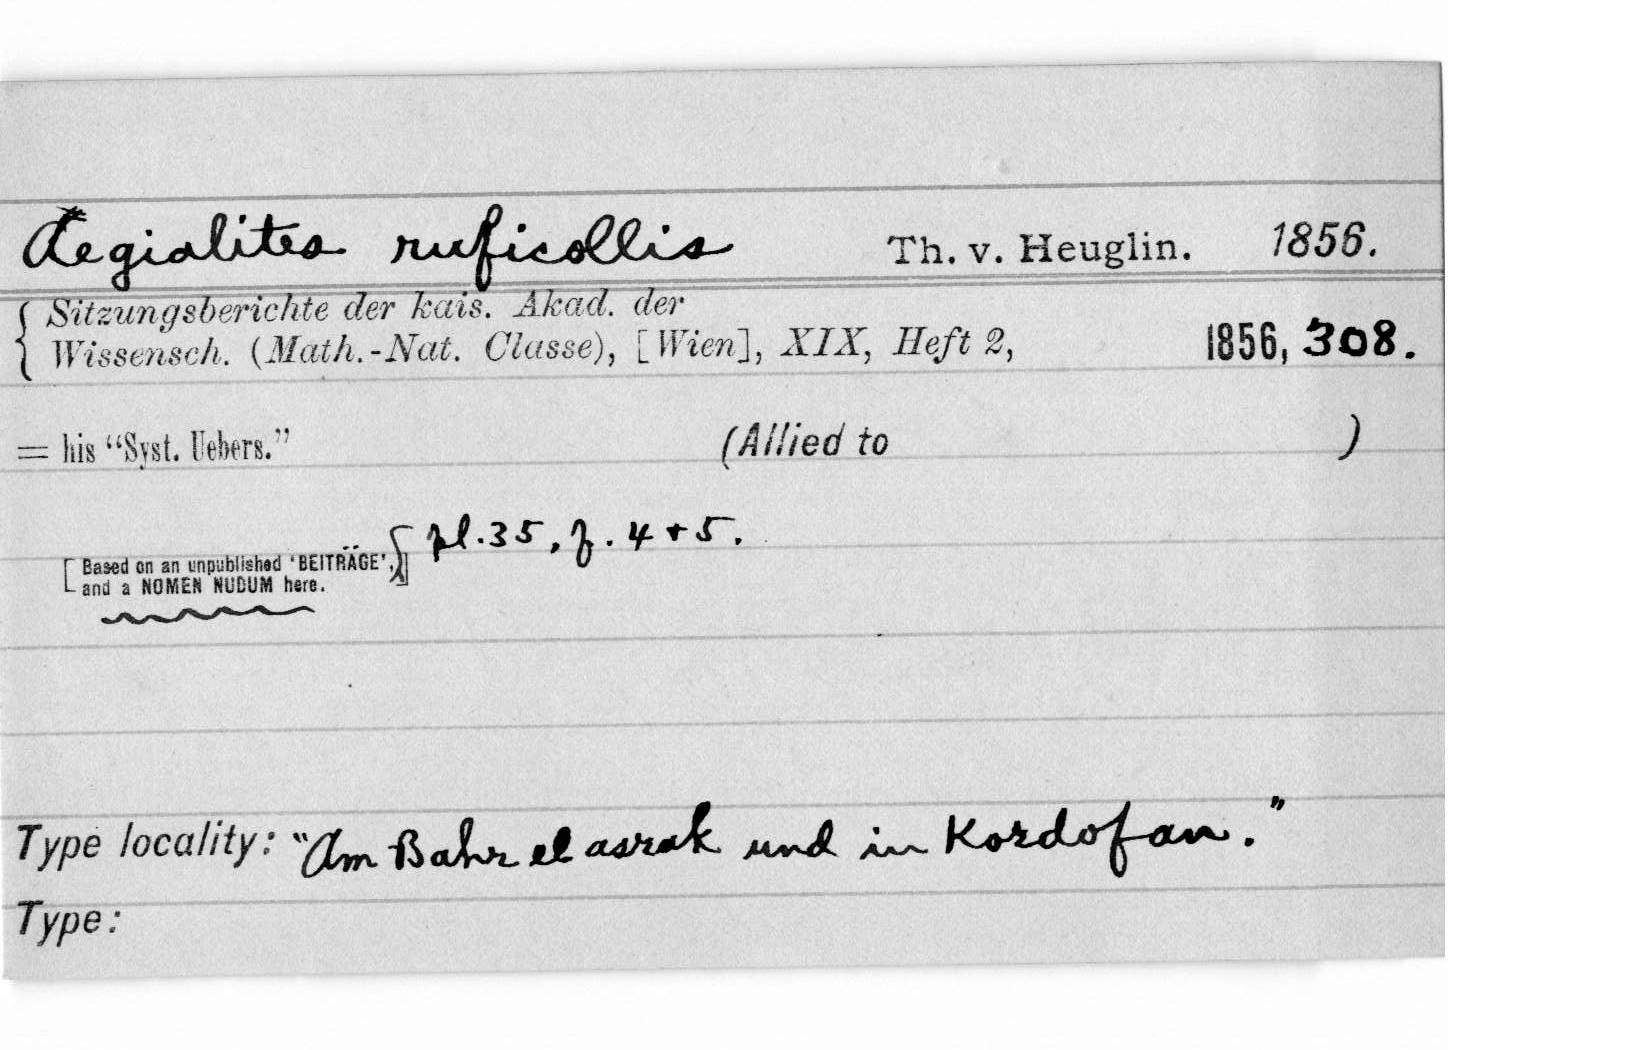 Aegialites ruficollis Th. v. Heuglin. 1856.
{ Sitzungsberichte der kais. Akad. der
Wissensch. (Math.-Nat. Classe), [Wien], XIX, Heft 2, 1856, 308.
= his “Syst. Uebers.” (Allied to )
pl. 35, f. 4 + 5.
[Based on an unpublished ‘BEITRÄGE’,
and a NOMEN NUDUM here.]
Type locality: “Am Bahr el asrak und in Kordofan.”
Type: